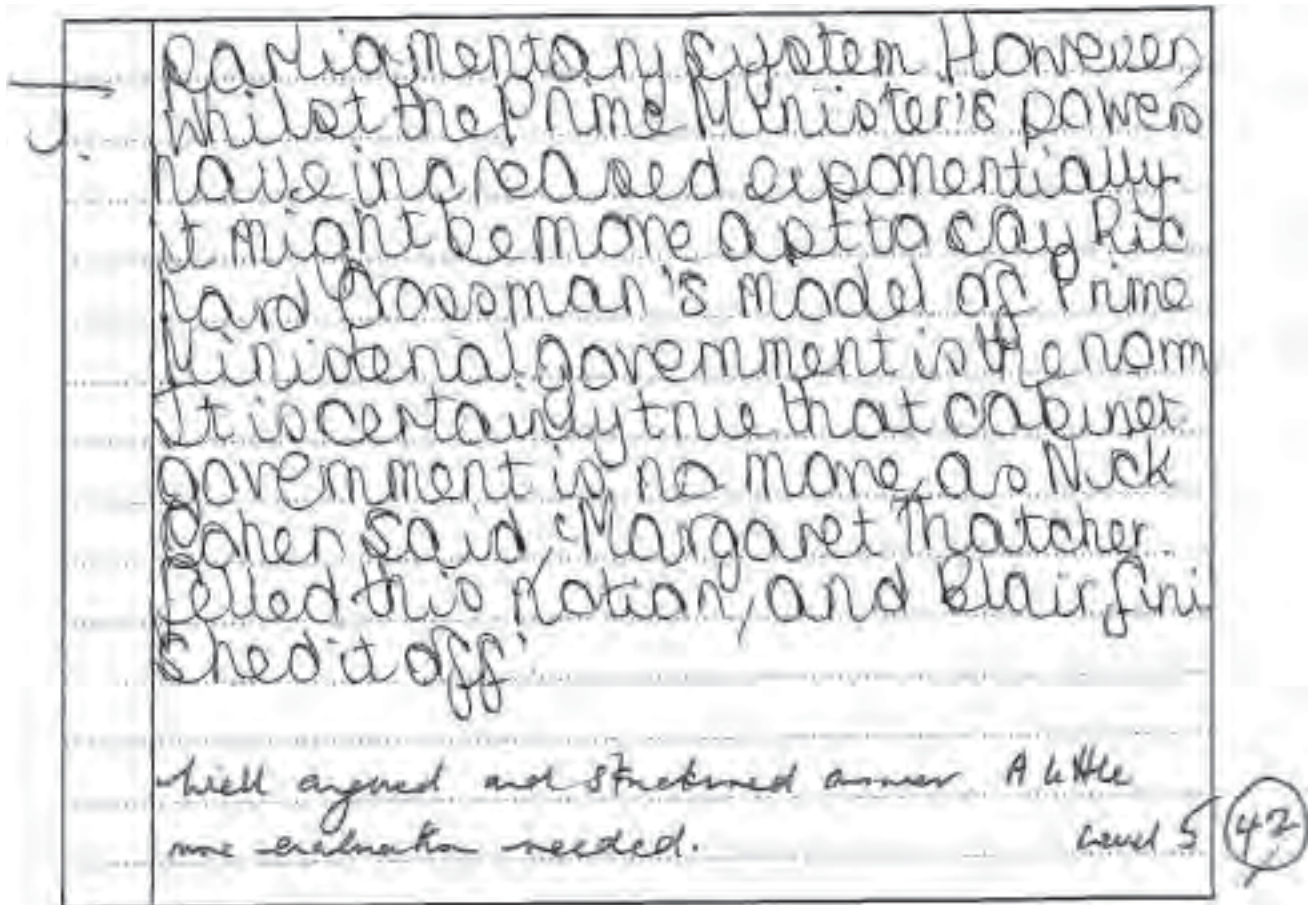 parliamentary system. However,
whilst the Prime Minister's powers
have increased exponentially
it might be more apt to say Ric
hard Crossman's model of Prime
Ministerial government is the norm
It is certainly true that cabinet
government is no more, as Nick
Cohen said 'Margaret Thatcher
felled this notion, and Blair fini
shed it off'
Well argued and structured answer. A little
more evaluation needed. Level 5 42